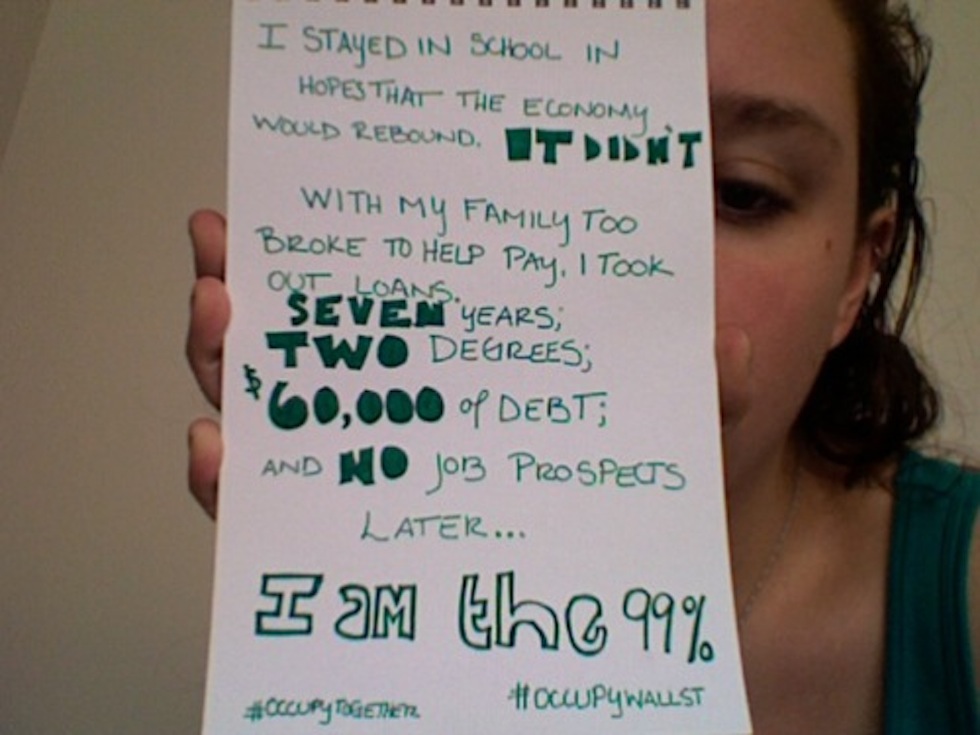 I STAYED IN SCHOOL IN
HOPES THAT THE ECONOMY
WOULD REBOUND. IT DIDN'T
WITH MY FAMILY TOO
BROKE TO HELP PAY, I TOOK
OUT LOANS.
SEVEN YEARS;
TWO DEGREES;
$60,000 of DEBT;
AND NO JOB PROSPECTS
LATER...
I AM the 99%
#OCCUPYTOGETHER #OCCUPYWALLST